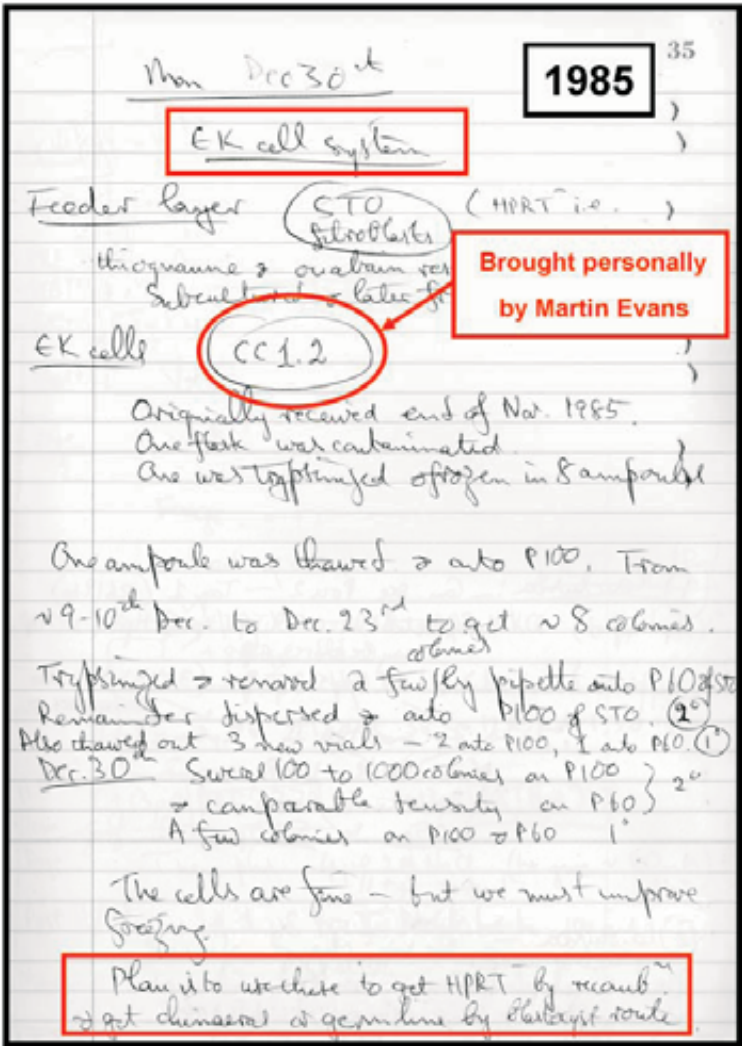 35
Mon Dec 30th
1985
EK cell system
Feeder layer STO (HPRT⁻ i.e.
fibroblasts
thioguanine & ouabain res
Brought personally
by Martin Evans
Subcultured & later fr
EK cells CC1.2
Originally received end of Nov. 1985.
One flask was contaminated.
One was trypsinized & frozen in 8 ampoules
One ampoule was thawed & onto P100. From
~9-10th Dec. to Dec. 23rd to get ~8 colonies.
colonies
Trypsinized & removed a few by pipette onto P60 of STO
Remainder dispersed & onto P100 of STO. 2°
Also thawed out 3 new vials – 2 onto P100, 1 onto P60. 1°
Dec. 30th Several 100 to 1000 colonies on P100
& comparable density on P60 } 2°
A few colonies on P100 & P60 1°
The cells are fine – but we must improve
freezing.
Plan is to use these to get HPRT⁻ by recombn.
& get chimaeras & germline by blastocyst route